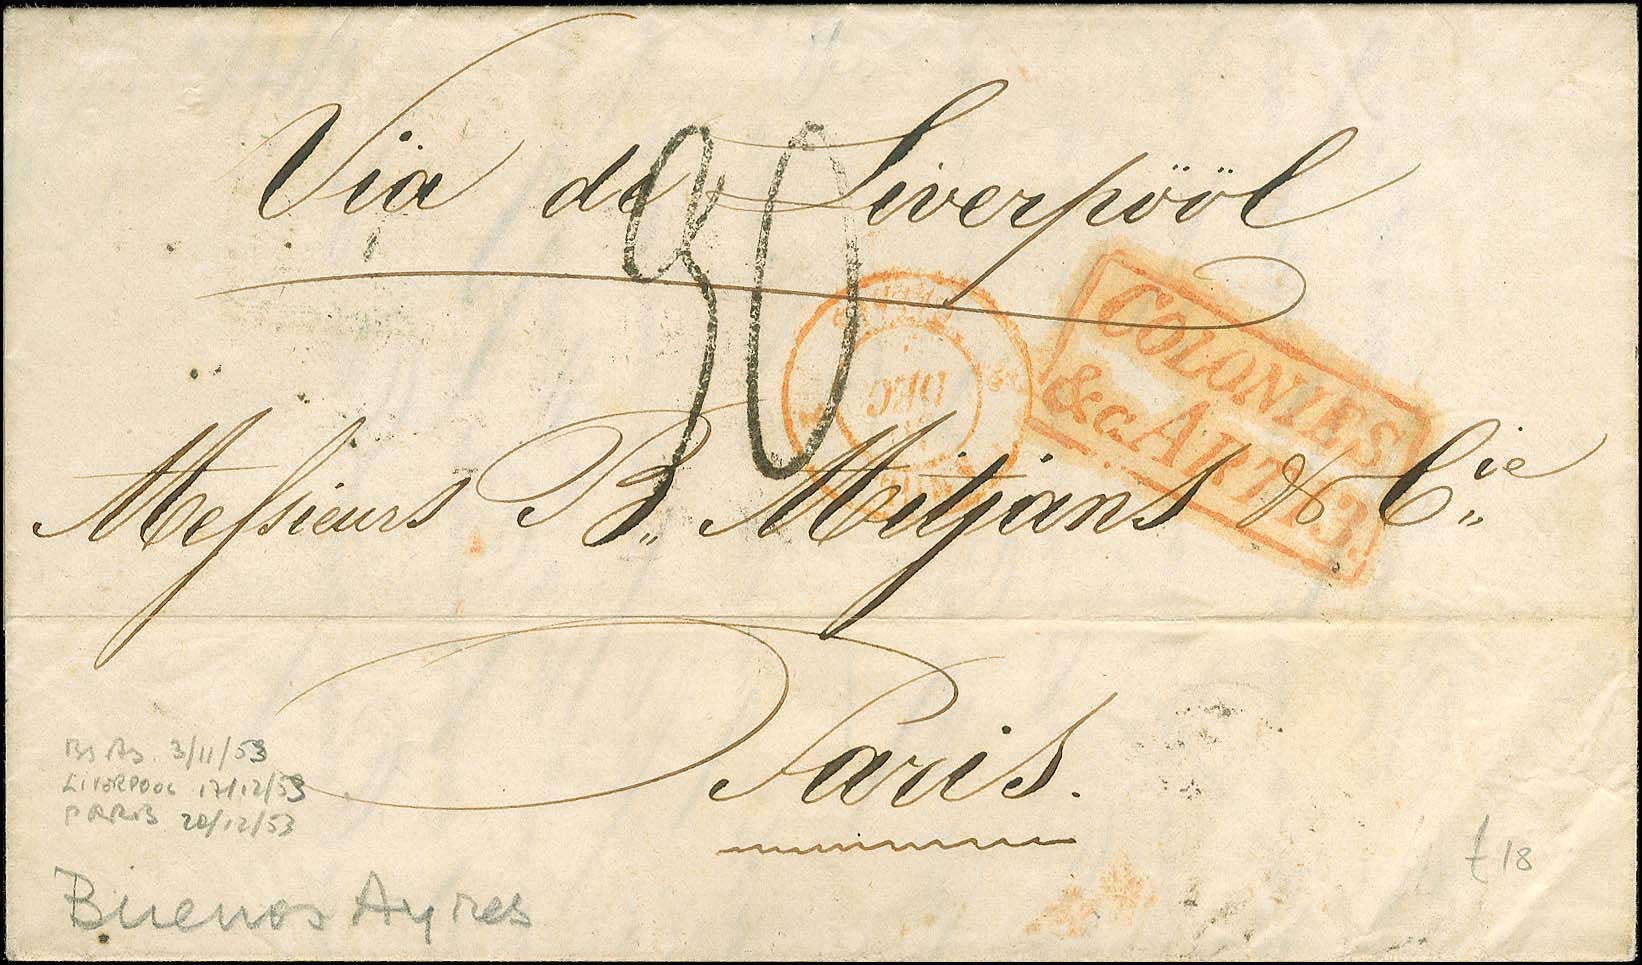 Via de Liverpööl
30
DEC
COLONIES
&c. ART. 13.
Messieurs B. Mitjans & Cie
Paris.
Bs As. 3/11/53
LIVERPOOL 17/12/53
PARIS 20/12/53
Buenos Ayres
£18